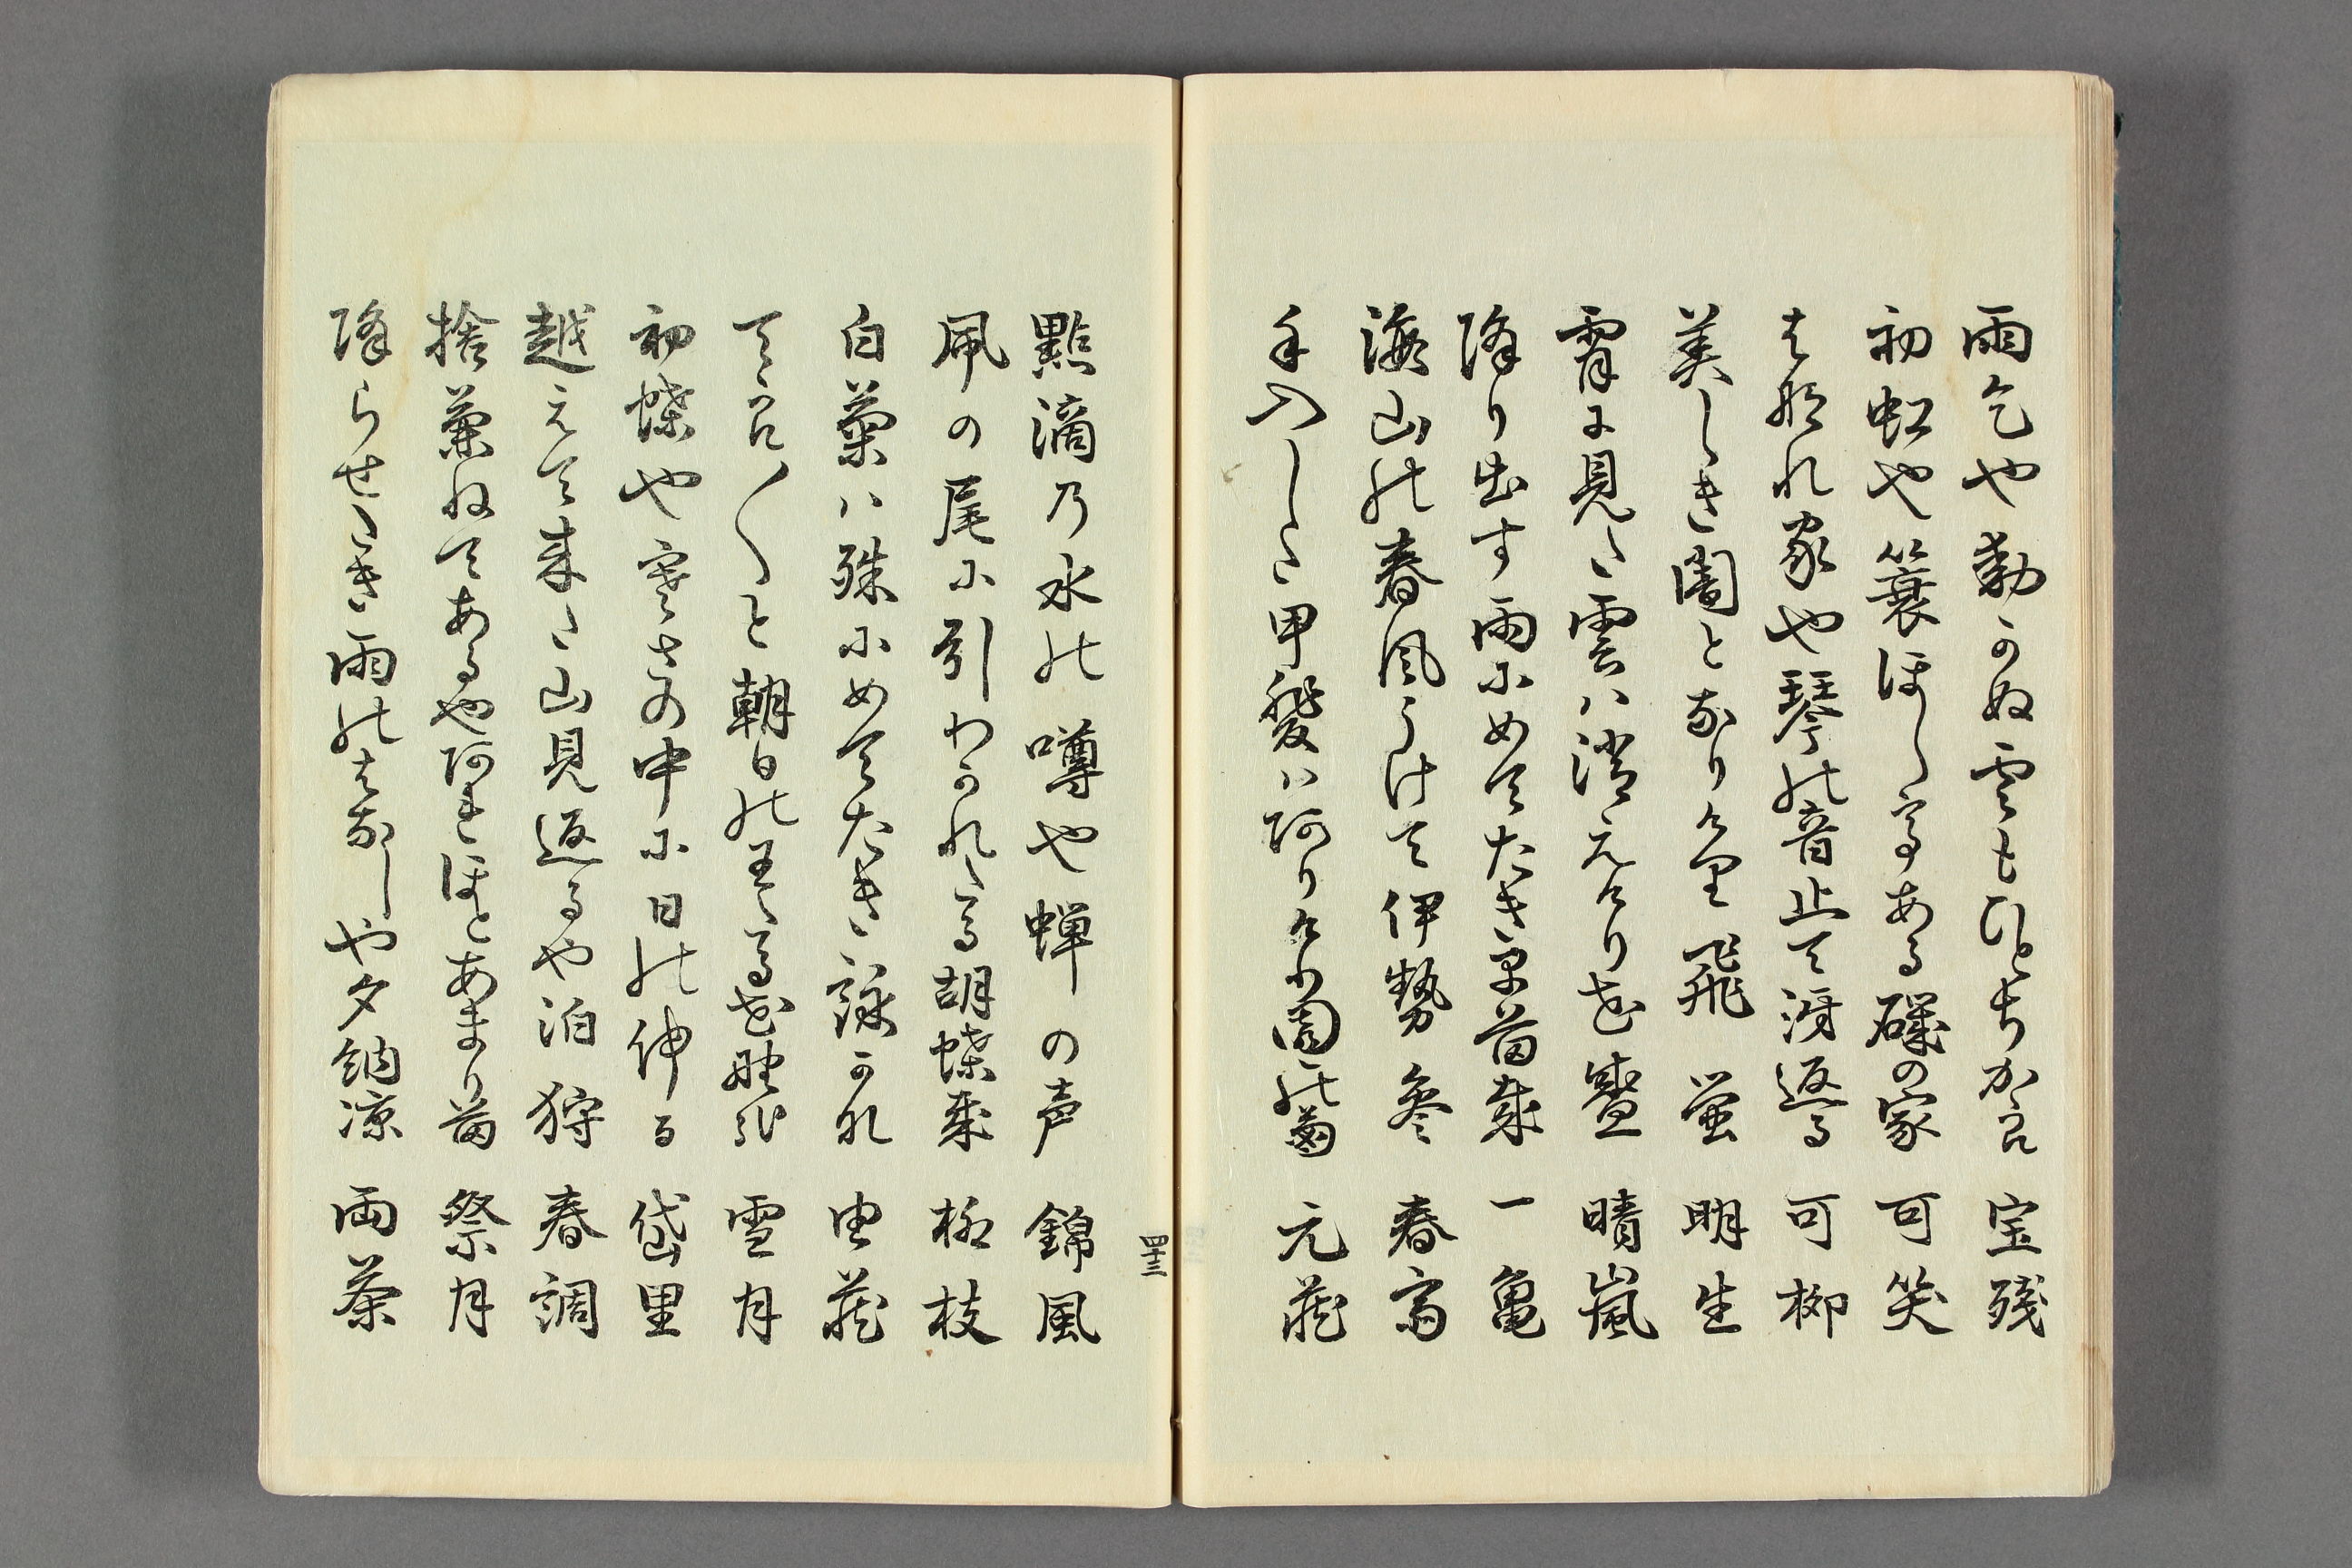 雨乞や動かぬ雲もひとちから 宝残
初虹や簑ほして有ある礒の家 可笑
はなれ家や琴の音止て冴返る 可柳
美しき闇となりけり飛蛍 明生
宵に見た雲は消えけり花盛 晴嵐
降り出す雨にめてたき早苗哉 一亀
海山の春風うけて伊勢参 春高
手入した甲斐は阿りけり園の菊 元茂
點滴乃水の噂や蝉の声 錦風
凧の尾に引わかれたる胡蝶哉 柳枝
白菊は殊にめてたき詠かな 由茂
てら〱と朝日のはる花野哉 雪月
初蝶や寒さの中に日の伸る 岱里
越えて来た山見返るや泊狩 春調
捨兼ねてあるや阿れほとあまり苗 祭月
降らせたき雨のはなしや夕納凉 雨茶
四十三